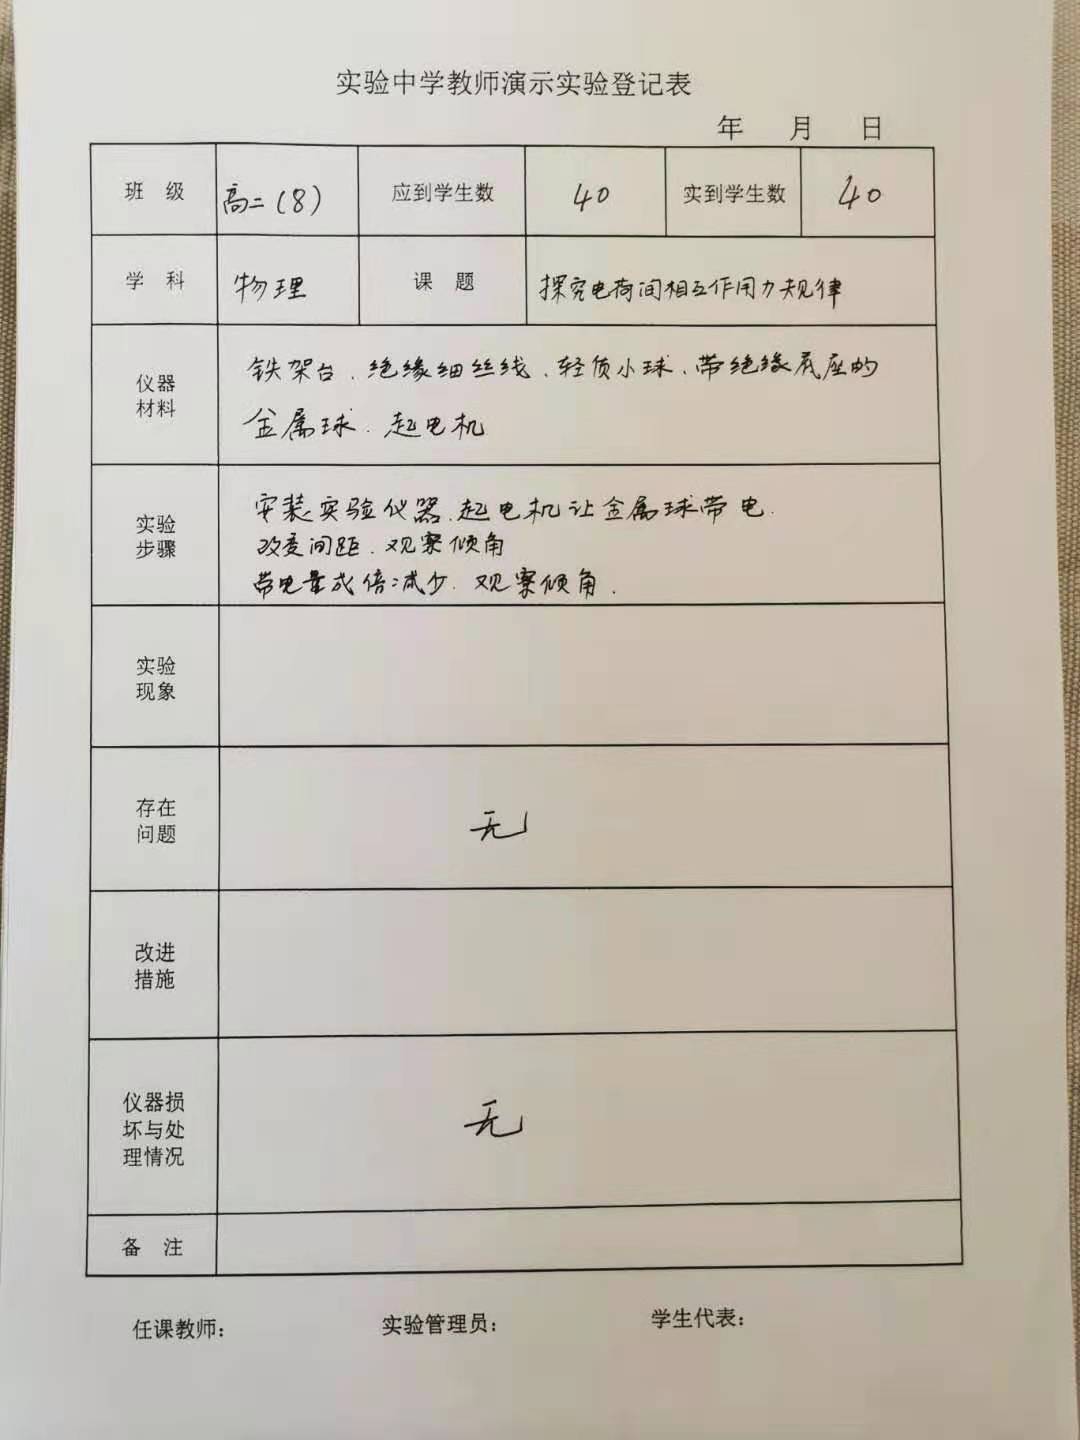 实验中学教师演示实验登记表
年 月 日
班 级 高二(8) 应到学生数 40 实到学生数 40
学 科 物理 课 题 探究电荷间相互作用力规律
仪器
材料
铁架台、绝缘细丝线、轻质小球、带绝缘底座的
金属球、起电机
实验
步骤
安装实验仪器.起电机让金属球带电.
改变间距.观察倾角
带电量成倍减少.观察倾角.
实验
现象
存在
问题
无
改进
措施
仪器损
坏与处
理情况
无
备 注
任课教师: 实验管理员: 学生代表: